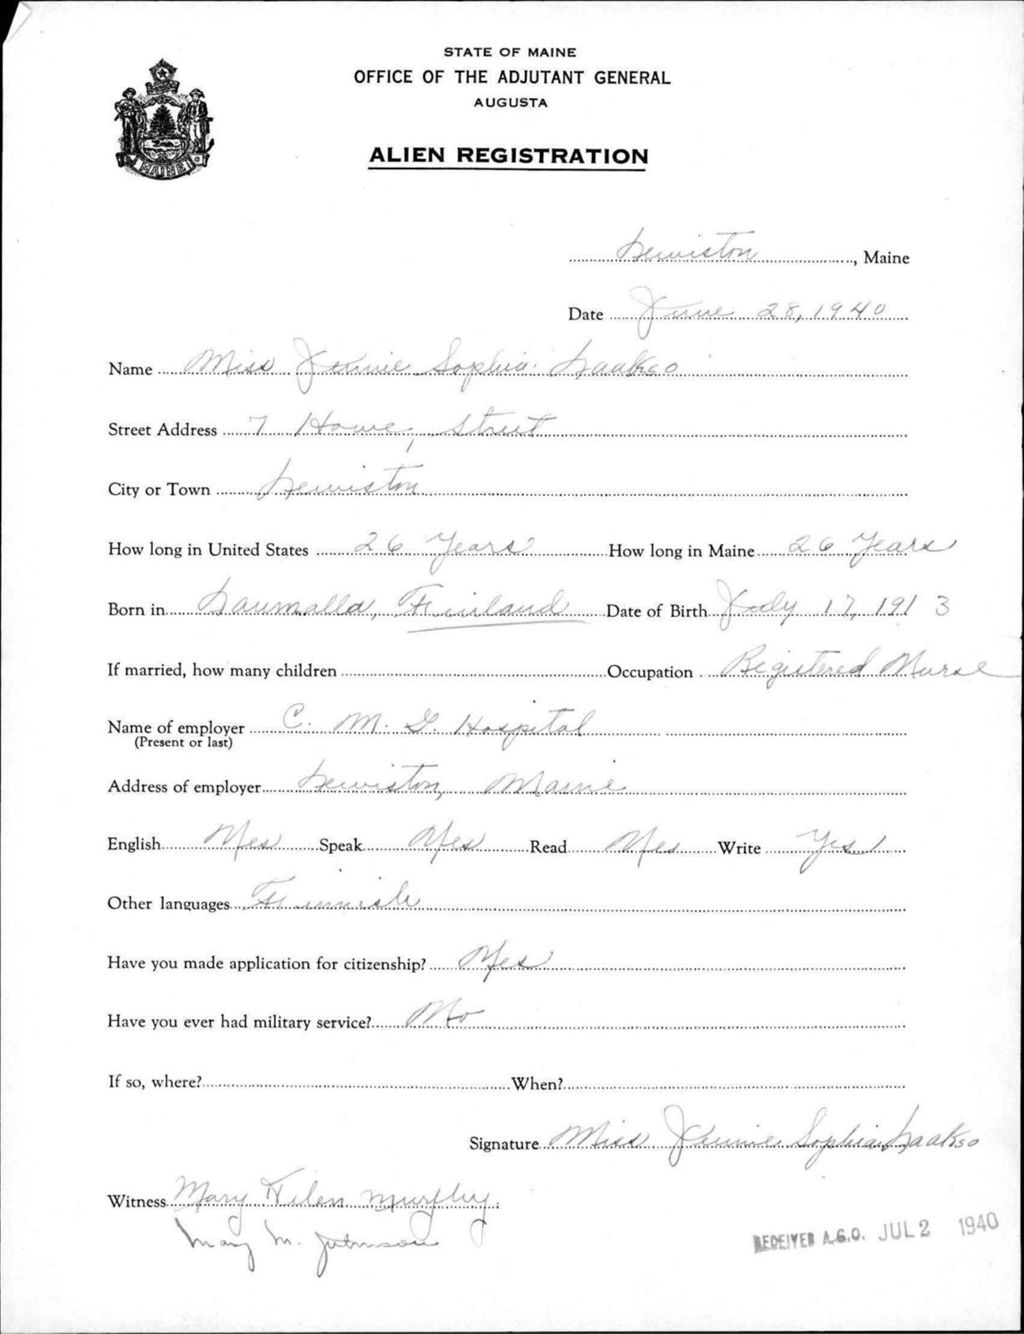 STATE OF MAINE
OFFICE OF THE ADJUTANT GENERAL
AUGUSTA
ALIEN REGISTRATION
MAINE
Lewiston, Maine
Date June 28, 1940
Name Miss Jennie Sophia Laakso
Street Address 7 Howe, Street
City or Town Lewiston
How long in United States 26 Years How long in Maine 26 Years
Born in Finland Date of Birth July 17, 1913
If married, how many children Occupation Registered Nurse
Name of employer C. M. G. Hospital
(Present or last)
Address of employer Lewiston, Maine
English Yes Speak Yes Read Yes Write Yes
Other languages Finnish
Have you made application for citizenship? Yes
Have you ever had military service? No
If so, where? When?
Signature Miss Jennie Sophia Laakso
Witness Mary Helen Murphy.
Mary M. Johnson
RECEIVED A.G.O. JUL 2 1940